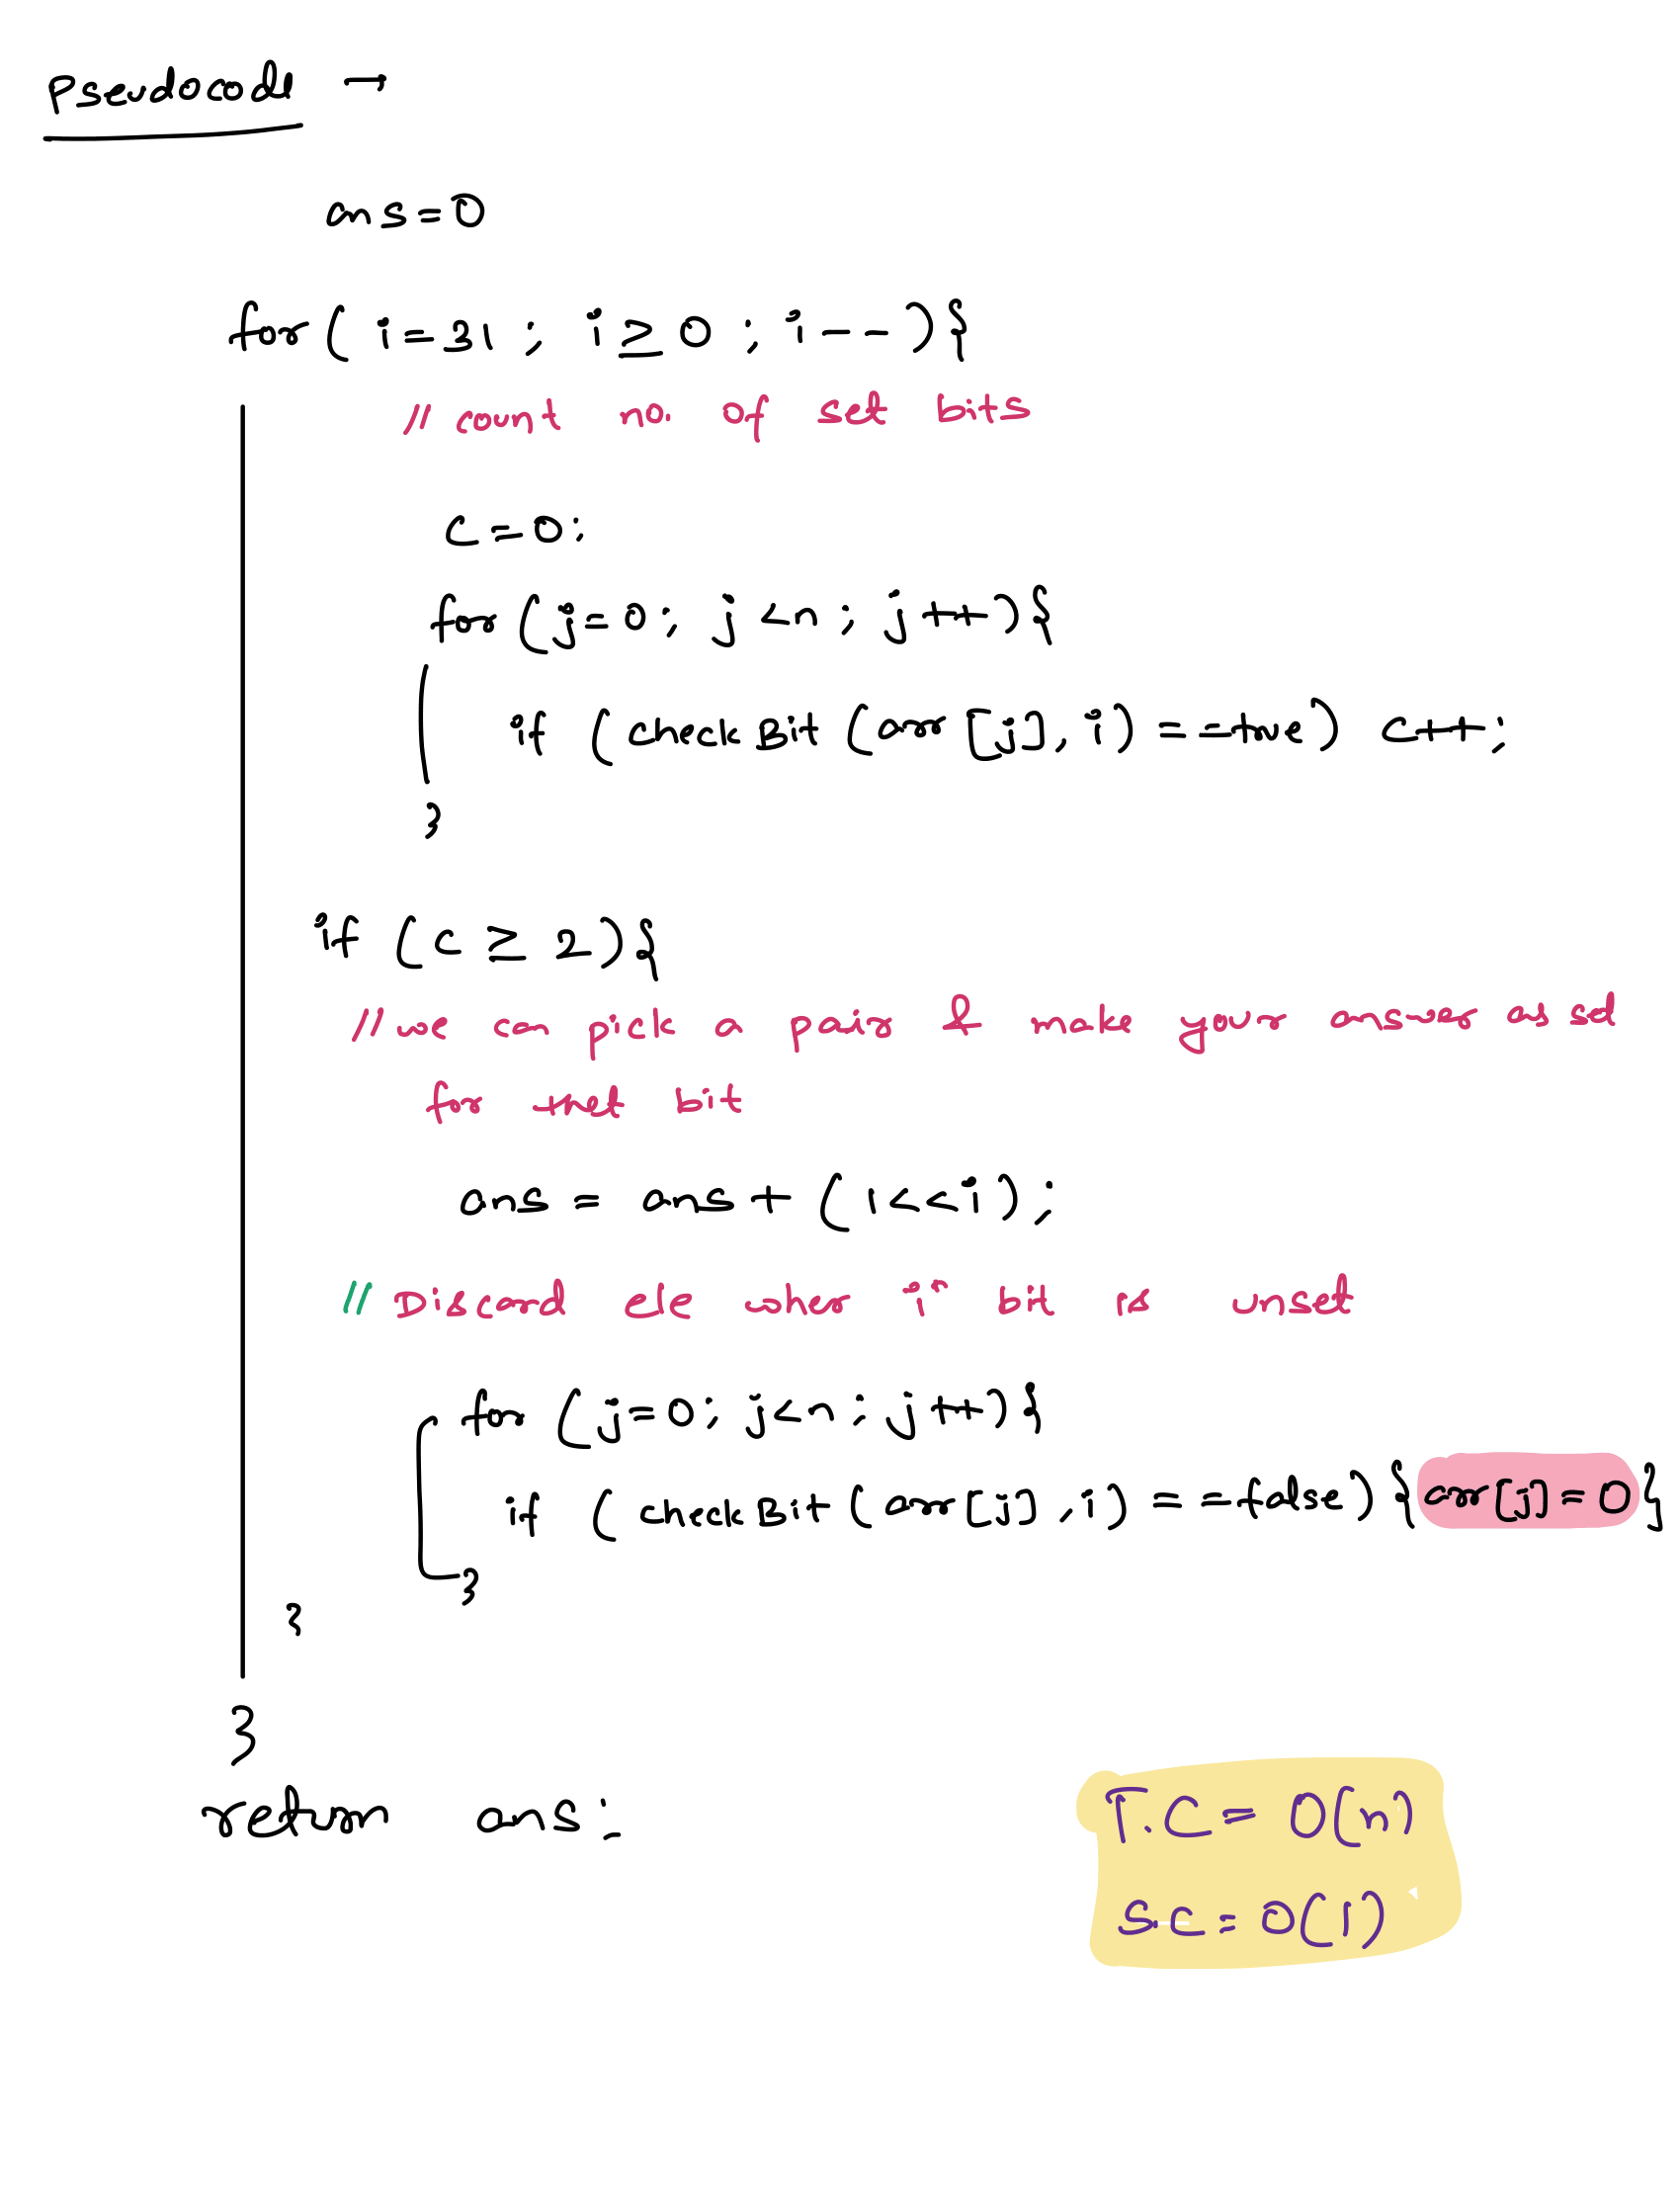 Pseudocode →
ans=0
for( i=31 ; i ≥ 0 ; i-- ){
// count no. of set bits
c=0;
for(j=0; j<n ; j++){
if (checkBit (arr[j], i) ==true) c++;
}
if (c ≥ 2){
// we can pick a pair & make your answer as set
for that bit
ans = ans + (1<<i) ;
// Discard ele when iᵗʰ bit is unset
for (j=0; j<n; j++){
if ( checkBit (arr[j] ,i) ==false){arr[j]=0}
}
}
}
return ans;
T.C = O(n)
S.C = O(1)